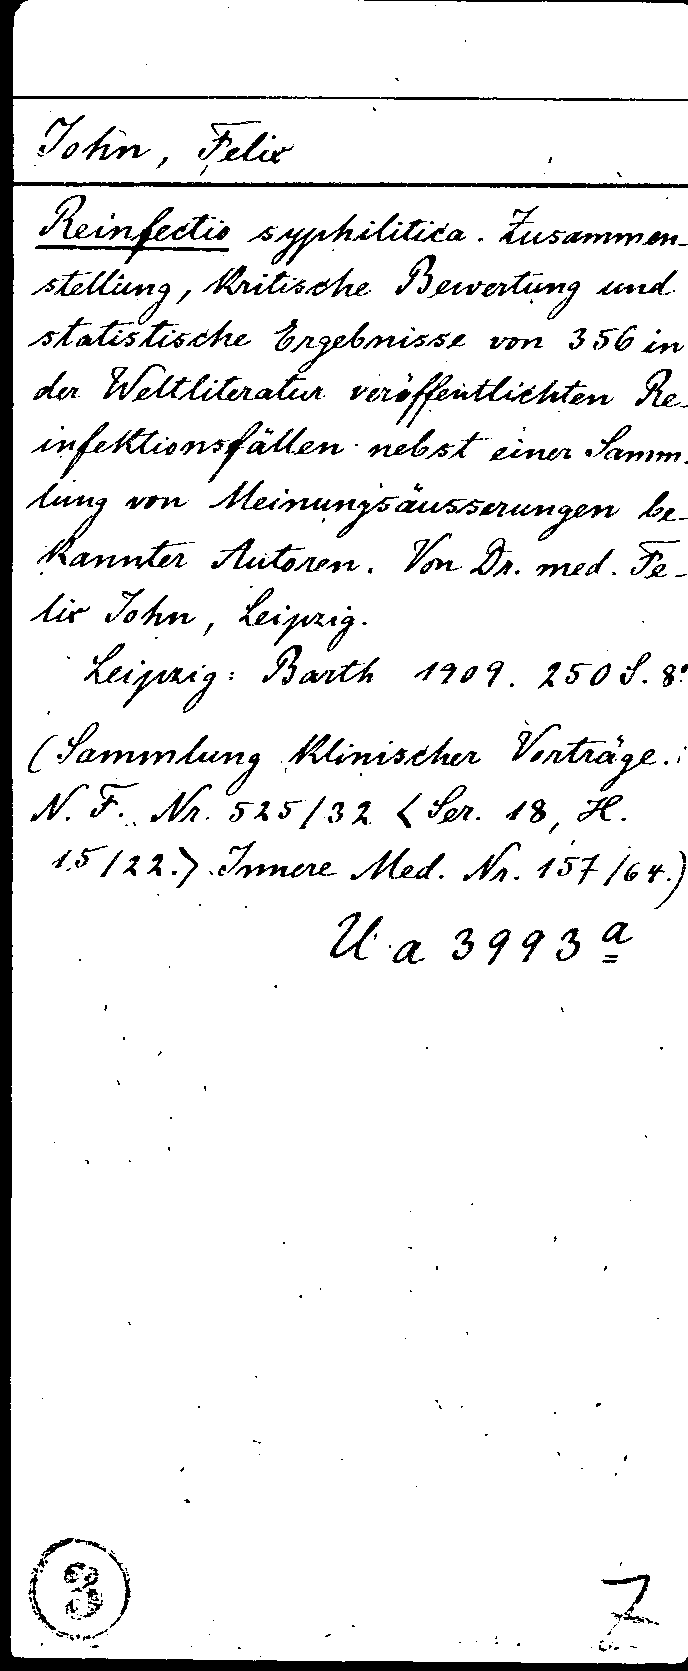 John, Felix
Reinfectio syphilitica. Zusammen-
stellung, kritische Bewertung und
statistische Ergebnisse von 356 in
der Weltliteratur veröffentlichten Re-
infektionsfällen nebst einer Samm-
lung von Meinungsäusserungen be-
kannter Autoren. Von Dr. med. Fe-
lix John, Leipzig.
Leipzig: Barth 1909. 250 S. 8°
(Sammlung klinischer Vorträge.
N. F. Nr. 525/32 <Ser. 18, H.
15/22.> Innere Med. Nr. 157/64.)
U a 3993 a
3
Z